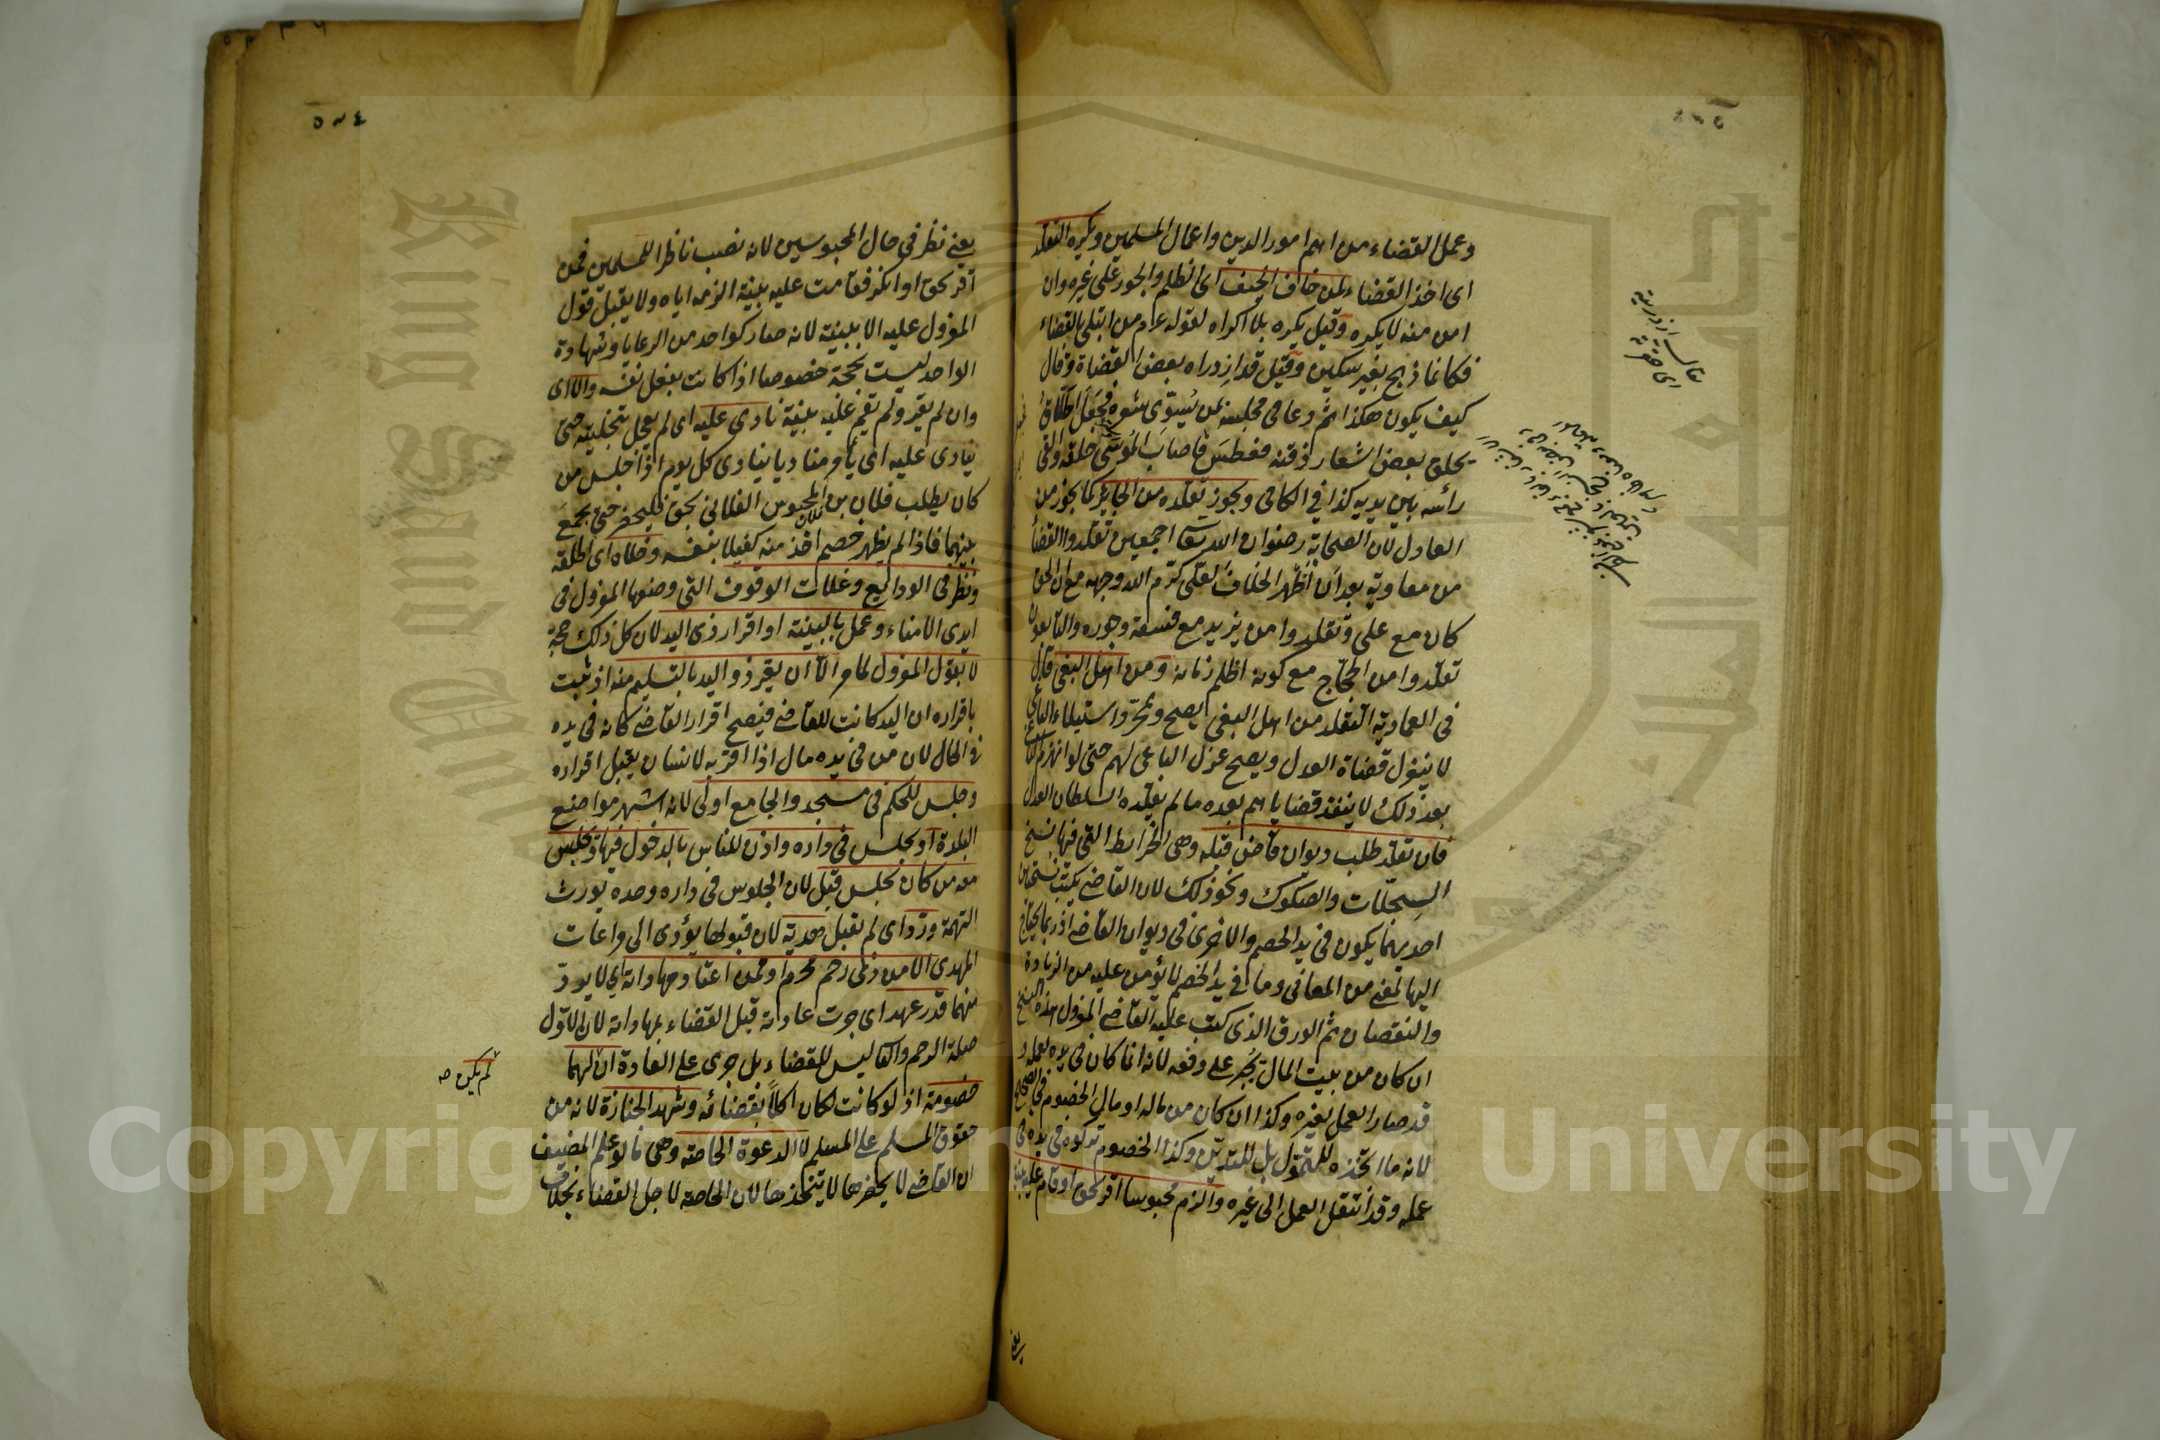 وعمل القضاء من اهم امور الدين واعمال المسلمين ويكره التقلد
اى اخذ القضاء لمن خاف الحيف اى الظلم والجور على غيره وان
امن منه لا يكره وقيل يكره بلا اكراه لقوله عم من ابتلى بالقضاء
فكانما ذبح بغير سكين وقيل قد ازدراه بعض القضاة وقال
كيف يكون هكذا ثم دعا فى مجلسه لمن يسوى شعره فجعل الحلاق
يحلق بعض اشعار ذقنه فعطس فاصاب الموسى حلقه والقى
رأسه بين يديه كذا فى الكافى ويجوز تقلده من الجائر كما يجوز من
العادل لان الصحابة رضوان الله تعا اجمعين تقلدوا القضاء
من معاوية بعد ان اظهر الخلاف لعلى كرم الله وجهه مع ان الحق
كان مع على وتقلدوا من يزيد مع فسقه وجوره والتابعون
تقلدوا من الحجاج مع كونه اظلم زمانه ومن اهل البغى قال
فى العمادية التقلد من اهل البغى يصح وبمجرد استيلاء الباغى
لا ينعزل قضاة العدل ويصح عزل الباغى لهم حتى لو انهزم الباغى
بعد ذلك لا ينفذ قضاياهم بعده ما لم يقلده السلطان العدل
فان تقلد طلب ديوان قاض قبله وهى الخرائط التى فيها نسخ
السجلات والصكوك ونحو ذلك لان القاضى يكتب نسختين
احديهما يكون فى يد الخصم والاخرى فى ديوان القاضى اذ ربما يحتاج
اليها لمعنى من المعانى وما فى يد الخصم لا يؤمن عليه من الزيادة
والنقصان ثم الورق الذى كتب عليه القاضى المعزول هذه النسخ
ان كان من بيت المال يجبر على دفعه لانه انما كان فى يده لعمله و
قد صار العمل لغيره وكذا ان كان من ماله او مال الخصوم فى الصحيح
لانه ما اتخذه للتمول بل للتدين وكذا الخصوم تركوه فى يده فى
عمله وقد انتقل العمل الى غيره والزم محبوسا اقر بحق او قام عليه بينة
يعنى
يعنى نظر فى حال المحبوسين لانه نصب ناظرا للمسلمين فمن
اقر بحق او انكر فقامت عليه بينة الزمه اياه ولا يقبل قول
المعزول عليه الا ببينة لانه صار كواحد من الرعايا وشهادة
الواحد ليست بحجة خصوصا اذا كانت بفعل نفسه والا اى
وان لم يقر ولم يقم عليه بينة نادى عليه اى لم يعجل بتخليته حتى
ينادى عليه اى يأمر مناديا ينادى كل يوم اذا جلس من
كان يطلب فلان بن فلان المحبوس الفلانى بحق فليحضر حتى يجمع
بينهما فاذا لم يظهر خصم اخذ منه كفيلا بنفسه وخلاه اى اطلقه
ونظر فى الودايع وغلات الوقوف التى وضعها المعزول فى
ايدى الامناء وعمل بالبينة او اقرار ذى اليد لان كل ذلك حجة
لا بقول المعزول لما مر الا ان يقر ذو اليد بالتسليم منه اذ ثبت
باقراره ان اليد كانت للقاضى فيصح اقرار القاضى كانه فى يده
فى الحال لان من فى يده مال اذا اقر به لانسان يقبل اقراره
وجلس للحكم فى مسجد والجامع اولى لانه اشهر مواضع
البلدة او يجلس فى داره واذن للناس بالدخول فيها ويجلس
معه من كان يجلس قبل لان الجلوس فى داره وحده يورث
التهمة ورد اى لم يقبل هدية لان قبولها يؤدى الى مراعات
المهدى الا من ذى رحم محرم او ممن اعتاد مهاداته اى لا يرد
منهما قدر عهد اى جرت عادته قبل القضاء بمهاداته لان الاول
صلة الرحم والثانى ليس للقضاء بل جرى على العادة ان لهما
خصومة اذ لو كانت لكان اكلا بقضائه وشهد الجنازة لانه من
حقوق المسلم على المسلم لا الدعوة الخاصة وهى ما لو علم المضيف
ان القاضى لا يحضرها لا يتخذها لان الخاصة لاجل القضاء بخلاف
لم يكن صح
Copyright © King Saud University